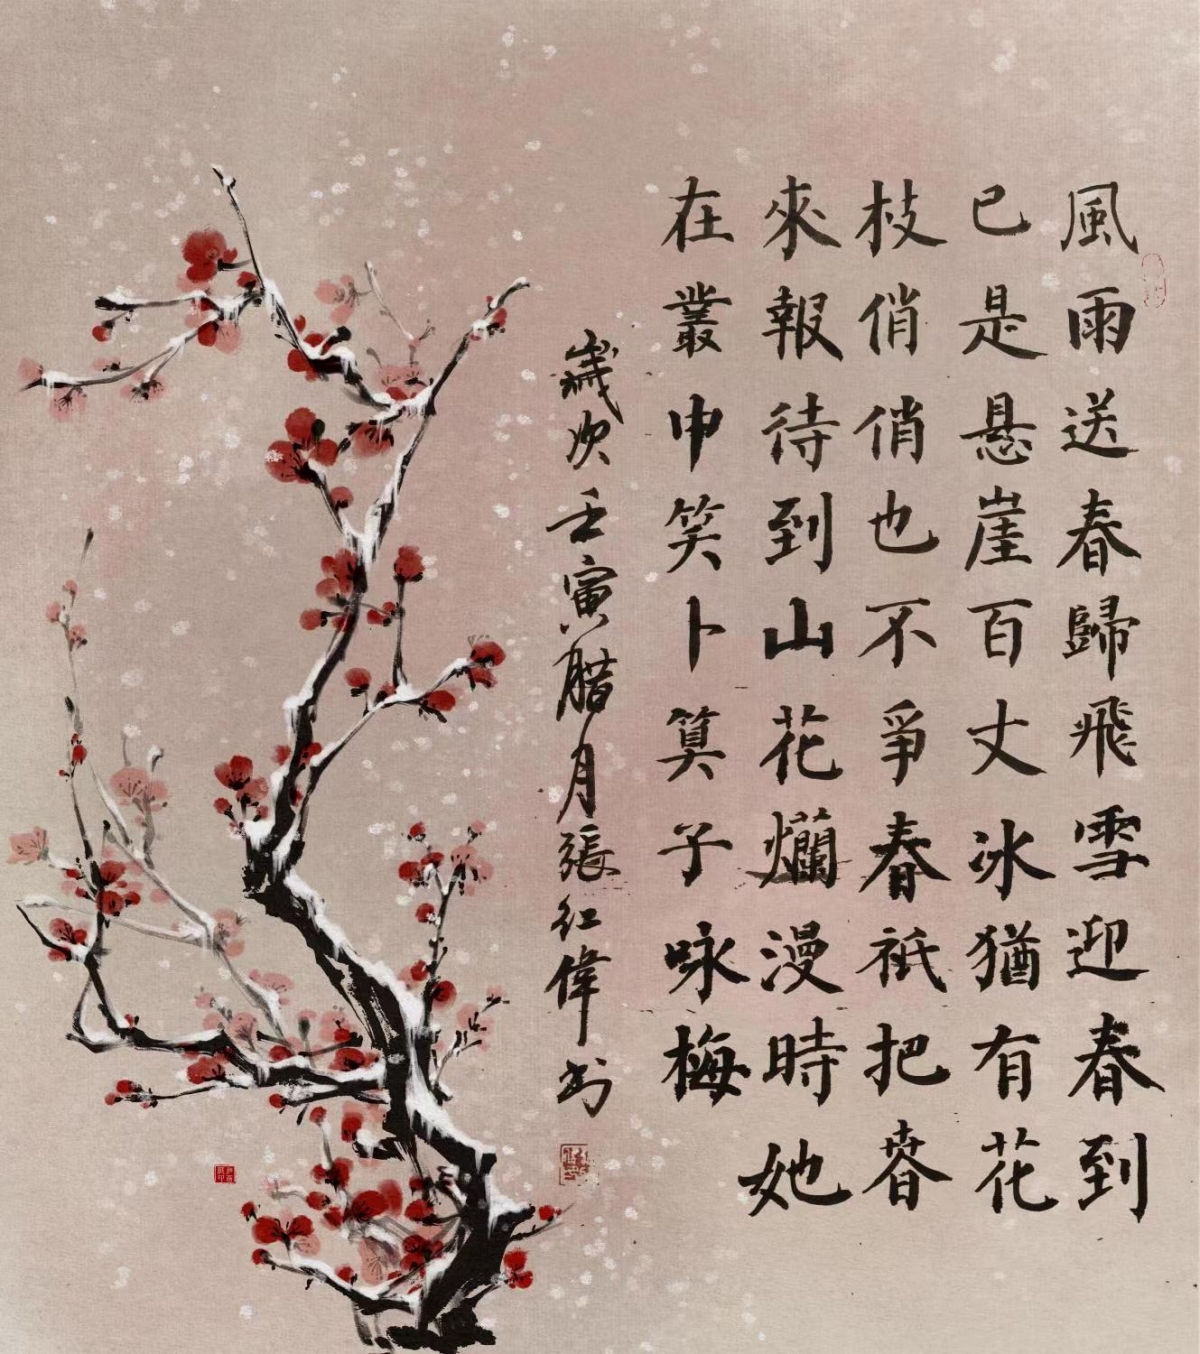 風雨送春歸飛雪迎春到
已是悬崖百丈冰猶有花
枝俏俏也不爭春祇把春
來報待到山花爛漫時她
在叢中笑卜算子咏梅
歲次壬寅腊月張红偉书